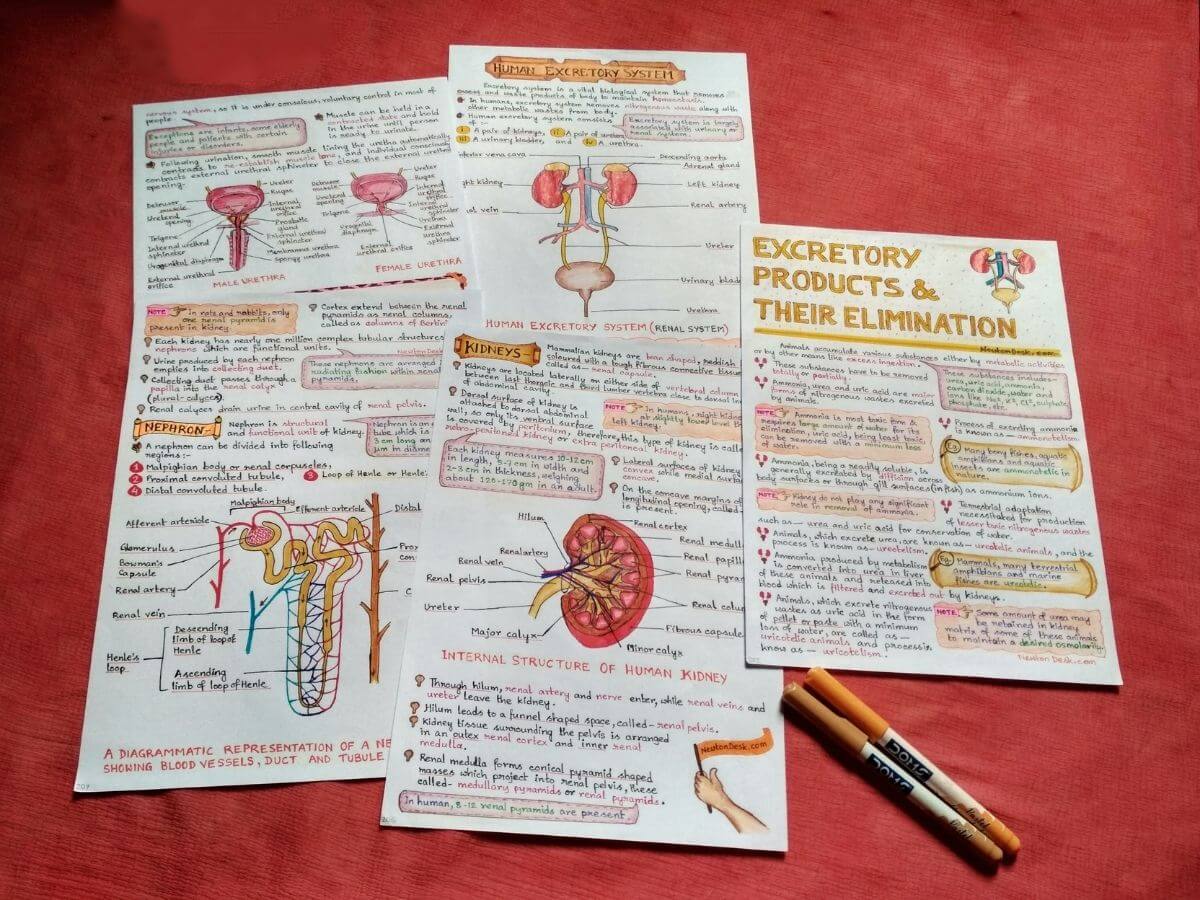 nervous system, so it is under conscious, voluntary control in most of
people
Exceptions are infants, some elderly
people and patients with certain
injuries or disorders.
Muscle can be held in a
contracted state and hold
in the urine until person
is ready to urinate.
Following urination, smooth muscle lining the uretha automatically
contracts to re-establish muscle tone, and individual consciously
contracts external urethral sphincter to close the external urethral
opening.
Detrusor
muscle
Ureteral
opening
Trigone
Internal urethral
sphincter
Urogenital diaphragm
External urethral
orifice
Ureter
Rugae
Internal
urethral
orifice
Prostatic
gland
External urethral
sphincter
Membranous urethra
Spongy urethra
MALE URETHRA
Detrusor
muscle
Ureteral
opening
Trigone
Urogenital
diaphragm
External
urethral orifice
Ureter
Rugae
Internal
urethral
orifice
Internal urethral
sphincter
Urethra
External
urethral
sphincter
FEMALE URETHRA
NOTE
In rats and rabbits, only
one renal pyramid is
present in kidney.
Cortex extend between the renal
pyramids as renal columns,
called as columns of Bertini
Each kidney has nearly one million complex tubular structures
nephrons which are functional units.
NewtonDesk
Urine produced by each nephron
empties into collecting duct.
These nephrons are arranged
radiating fashion within
pyramids.
Collecting duct passes through a
papilla into the renal calyx
(plural-calyces).
Renal calyces drain urine in central cavity of renal pelvis.
NEPHRON-
Nephron is structural
and functional unit of kidney.
Nephron is an
tube which is
3 cm long an
µm in diame
A nephron can be divided into following
regions :-
1 Malpighian body or renal corpuscles,
2 Proximal convoluted tubule, 3 Loop of Henle or Henle
4 Distal convoluted tubule.
Malpighian body
Efferent arteriole
Distal
Afferent arteriole
Glomerulus
Bowman's
Capsule
Renal artery
Renal vein
Prox
con
C
Henle's
loop
Descending
limb of loop of
Henle
Ascending
limb of loop of Henle
A DIAGRAMMATIC REPRESENTATION OF A NE
SHOWING BLOOD VESSELS, DUCT AND TUBULE
207
HUMAN EXCRETORY SYSTEM
Excretory system is a vital biological system that removes
excess and waste products of body to maintain homeostasis.
In humans, excretory system removes nitrogenous waste along with
other metabolic wastes from body.
Human excretory system consists
of :-
Excretory system is largely
associated with urinary or
renal system.
i A pair of kidneys, ii A pair of ureters
iii A urinary bladder, and iv A urethra.
ferior vena cava
ght kidney
al vein
Descending aorta
Adrenal gland
Left kidney
Renal artery
Ureter
Urinary bladd
Urethra
HUMAN EXCRETORY SYSTEM (RENAL SYSTEM)
KIDNEYS-
Mammalian kidneys are bean shaped, reddish
coloured with a tough fibrous connective tissue
called as- renal capsule.
Kidneys are located laterally on either side of vertebral column
between last thoracic and third lumber vertebra close to dorsal in
of abdominal cavity.
Dorsal surface of kidney is
attached to dorsal abdominal
wall, so only its ventral surface
is covered by peritonium, therefore, this type of kidney is calle
Retro-peritoneal kidney or extra peritoneal kidney.
NOTE
In humans, right kidney
at slightly lower level th
left kidney.
Each kidney measures 10-12 cm
in length, 5-7 cm in width and
2-3 cm in thickness, weighing
about 120-170 gm in an adult.
Lateral surfaces of kidney
convex while medial surface
concave.
On the concave margins of
longitudinal opening, called-
is present.
Hilum
Renal artery
Renal vein
Renal pelvis
Ureter
Major calyx
Renal cortex
Renal medull
Renal papill
Renal pyra
Renal colu
Fibrous capsule
Minor calyx
INTERNAL STRUCTURE OF HUMAN KIDNEY
Through hilum, renal artery and nerve enter, while renal veins and
ureter leave the kidney.
Hilum leads to a funnel shaped space, called- renal pelvis.
Kidney tissue surrounding the pelvis is arranged
in an outex renal cortex and inner renal
medulla.
Renal medulla forms conical pyramid shaped
masses which project into renal pelvis, these
called- medullary pyramids or renal pyramids.
In human, 8-12 renal pyramids are present.
NewtonDesk.com
206
EXCRETORY
PRODUCTS &
THEIR ELIMINATION
NewtonDesk.com
Animals accumulate various substances either by metabolic activities
or by other means like excess ingestion.
These substances have to be removed
totally or partially.
Ammonia, urea and uric acid are major
forms of nitrogenous wastes excreted
by animals.
These substances includes-
urea, uric acid, ammonia,
carbon dioxide, water and
ions like Na+, K+, Cl-, sulphate,
phosphate, etc.
NOTE
Ammonia is most toxic form &
requires large amount of water for its
elimination, uric acid, being least toxic,
can be removed with a minimum loss
of water.
Process of excreting ammonia
is known as- ammonotelism.
Eg. Many bony fishes, aquatic
amphibians and aquatic
insects are ammonotelic in
nature.
Ammonia, being a readily soluble, is
generally excreted by diffusion across
body surfaces or through gill surfaces (in fish) as ammonium ions.
NOTE
Kidney do not play any significant
role in removal of ammonia.
Terrestrial adaptation
necessitated for production
of lesser toxic nitrogenous wastes
such as- urea and uric acid for conservation of water.
Animals, which excrete urea, are known as- ureotelic animals, and the
process is known as- ureotelism.
Ammonia produced by metabolism
is converted into urea in liver
of these animals and released into
blood which is filtered and excreted out by kidneys.
Eg. Mammals, many terrestrial
amphibians and marine
fishes are ureotelic.
Animals, which excrete nitrogenous
wastes as uric acid in the form
of pellet or paste with a minimum
loss of water, are called as-
uricotelic animals and process is
know as- uricotelism.
NOTE
Some amount of urea may
be retained in kidney
matrix of some of these animals
to maintain a desired osmolarity.
NewtonDesk.com
DOMS
DOMS